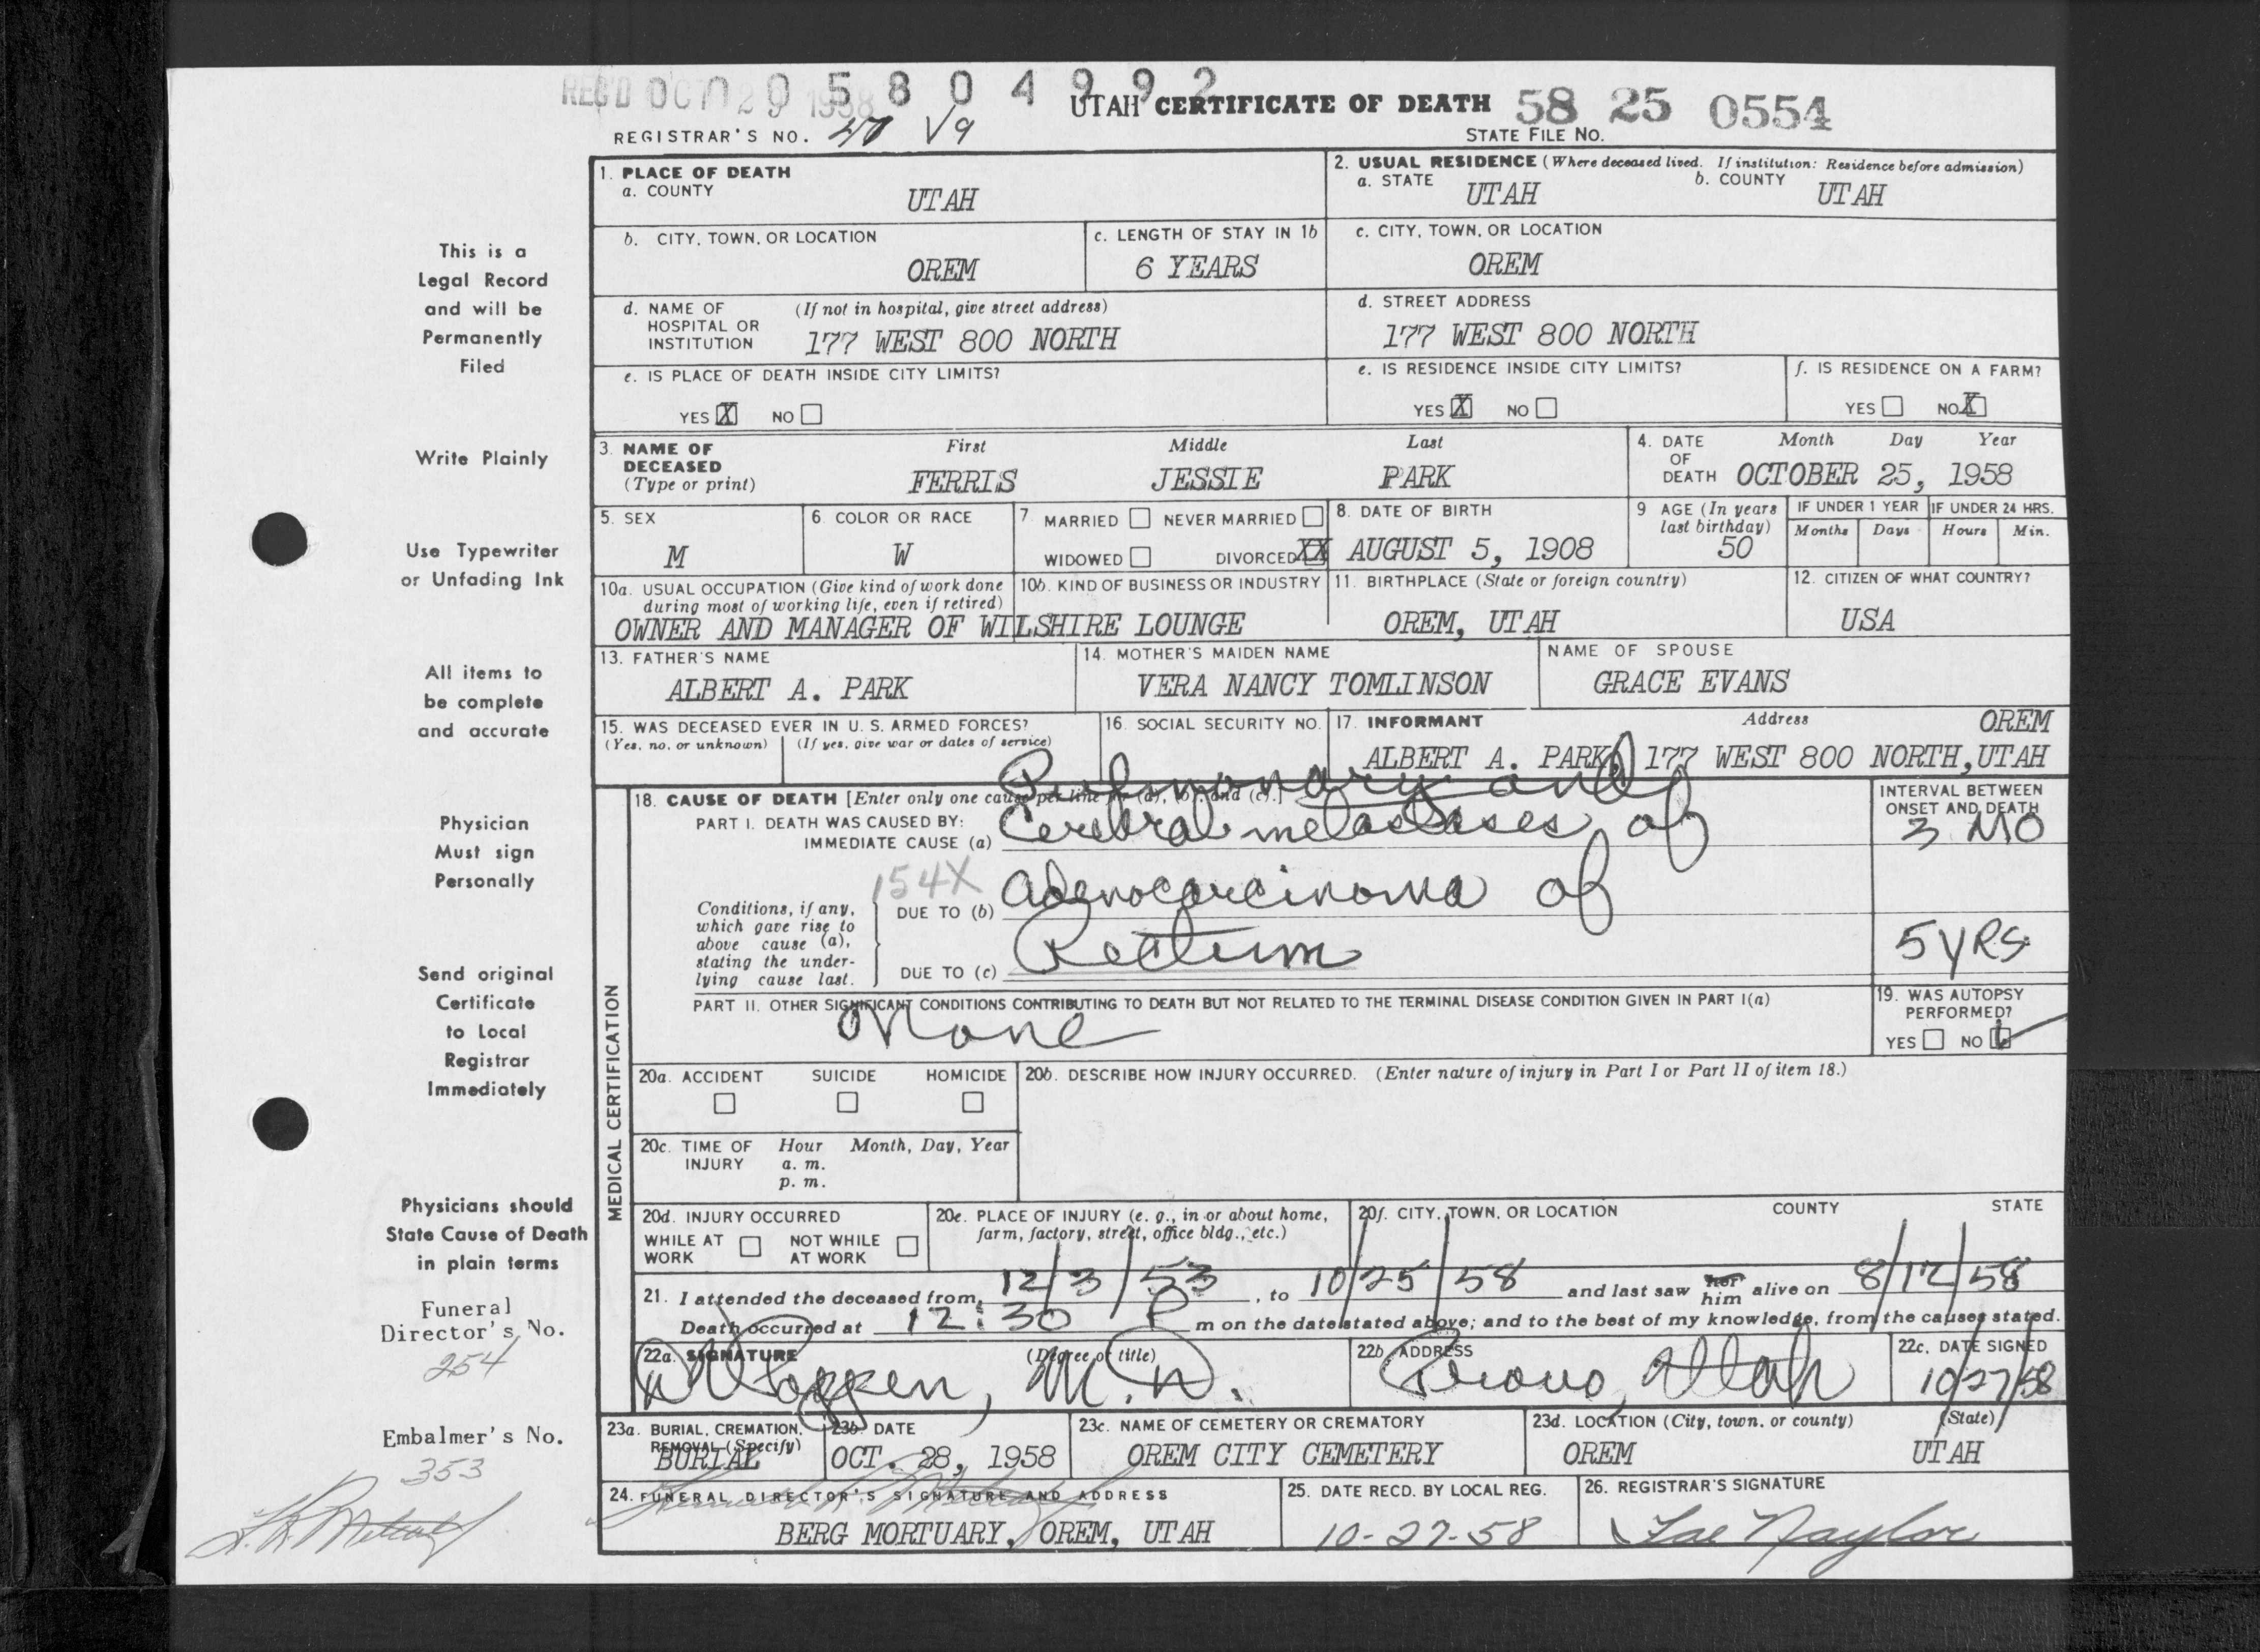 REC'D OCT 29 1958
0 0 0 5 8 0 4 9 9 2
UTAH CERTIFICATE OF DEATH 58 25 0554
REGISTRAR'S NO. V9 STATE FILE NO.
1. PLACE OF DEATH
a. COUNTY UTAH
2. USUAL RESIDENCE (Where deceased lived. If institution: Residence before admission)
a. STATE UTAH b. COUNTY UTAH
b. CITY, TOWN, OR LOCATION OREM
c. LENGTH OF STAY IN 1b 6 YEARS
c. CITY, TOWN, OR LOCATION OREM
d. NAME OF HOSPITAL OR INSTITUTION (If not in hospital, give street address) 177 WEST 800 NORTH
d. STREET ADDRESS 177 WEST 800 NORTH
e. IS PLACE OF DEATH INSIDE CITY LIMITS?
YES X NO
e. IS RESIDENCE INSIDE CITY LIMITS?
YES X NO
f. IS RESIDENCE ON A FARM?
YES NO X
3. NAME OF DECEASED (Type or print)
First Middle Last
FERRIS JESSIE PARK
4. DATE OF DEATH Month Day Year
OCTOBER 25, 1958
5. SEX M
6. COLOR OR RACE W
7 MARRIED NEVER MARRIED
WIDOWED DIVORCED XX
8. DATE OF BIRTH AUGUST 5, 1908
9 AGE (In years last birthday) 50
IF UNDER 1 YEAR Months Days
IF UNDER 24 HRS. Hours Min.
10a. USUAL OCCUPATION (Give kind of work done during most of working life, even if retired)
10b. KIND OF BUSINESS OR INDUSTRY
OWNER AND MANAGER OF WILSHIRE LOUNGE
11. BIRTHPLACE (State or foreign country) OREM, UTAH
12. CITIZEN OF WHAT COUNTRY? USA
13. FATHER'S NAME ALBERT A. PARK
14. MOTHER'S MAIDEN NAME VERA NANCY TOMLINSON
NAME OF SPOUSE GRACE EVANS
15. WAS DECEASED EVER IN U. S. ARMED FORCES?
(Yes, no, or unknown) (If yes, give war or dates of service)
16. SOCIAL SECURITY NO.
17. INFORMANT Address OREM
ALBERT A. PARK, 177 WEST 800 NORTH, UTAH
MEDICAL CERTIFICATION
18. CAUSE OF DEATH [Enter only one cause per line for (a), (b), and (c).]
PART I. DEATH WAS CAUSED BY:
IMMEDIATE CAUSE (a) Pulmonary and Cerebral metastases of
INTERVAL BETWEEN ONSET AND DEATH
3 MO
154X
Conditions, if any, which gave rise to above cause (a), stating the underlying cause last.
DUE TO (b) adenocarcinoma of
DUE TO (c) Rectum
5 YRS
PART II. OTHER SIGNIFICANT CONDITIONS CONTRIBUTING TO DEATH BUT NOT RELATED TO THE TERMINAL DISEASE CONDITION GIVEN IN PART I(a)
None
19. WAS AUTOPSY PERFORMED?
YES NO
20a. ACCIDENT SUICIDE HOMICIDE
20b. DESCRIBE HOW INJURY OCCURRED. (Enter nature of injury in Part I or Part II of item 18.)
20c. TIME OF INJURY Hour Month, Day, Year
a. m.
p. m.
20d. INJURY OCCURRED
WHILE AT WORK NOT WHILE AT WORK
20e. PLACE OF INJURY (e. g., in or about home, farm, factory, street, office bldg., etc.)
20f. CITY, TOWN, OR LOCATION COUNTY STATE
21. I attended the deceased from 12/3/53, to 10/25/58 and last saw her him alive on 8/12/58
Death occurred at 12:30 P m on the date stated above; and to the best of my knowledge, from the causes stated.
22a. SIGNATURE (Degree or title) M.D.
22b. ADDRESS Provo, Utah
22c. DATE SIGNED 10/27/58
23a. BURIAL, CREMATION, REMOVAL (Specify) BURIAL
23b. DATE OCT. 28, 1958
23c. NAME OF CEMETERY OR CREMATORY OREM CITY CEMETERY
23d. LOCATION (City, town, or county) (State)
OREM UTAH
24. FUNERAL DIRECTOR'S SIGNATURE AND ADDRESS
BERG MORTUARY, OREM, UTAH
25. DATE RECD. BY LOCAL REG. 10-27-58
26. REGISTRAR'S SIGNATURE Fae Naylor
This is a
Legal Record
and will be
Permanently
Filed
Write Plainly
Use Typewriter
or Unfading Ink
All items to
be complete
and accurate
Physician
Must sign
Personally
Send original
Certificate
to Local
Registrar
Immediately
Physicians should
State Cause of Death
in plain terms
Funeral
Director's No.
254
Embalmer's No.
353